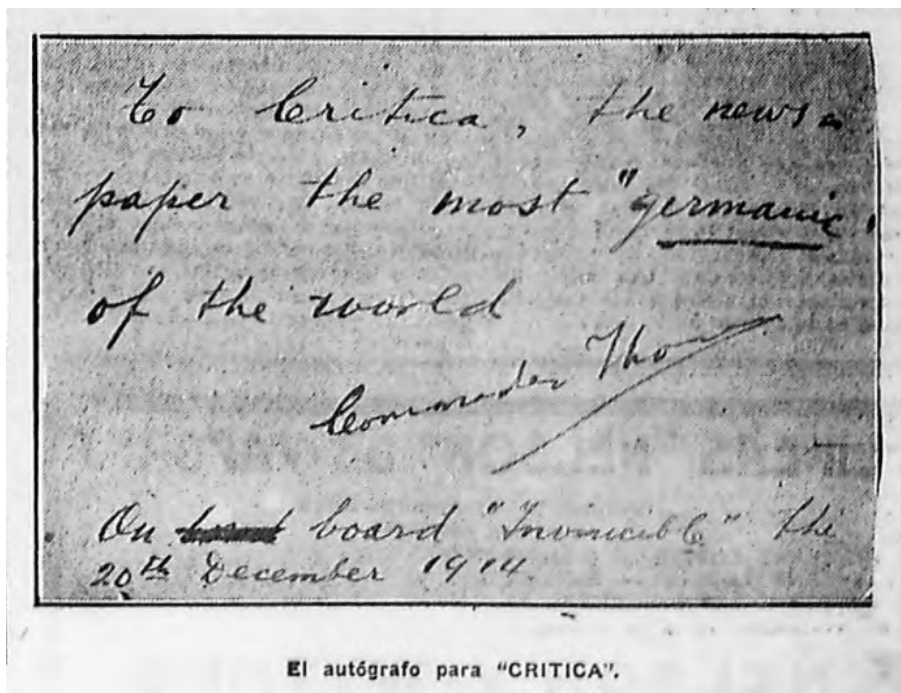 To Critica, the news=
paper the most "germanic"
of the world
Commander
On board "Invinicible" the
20th December 1914
El autógrafo para "CRITICA".